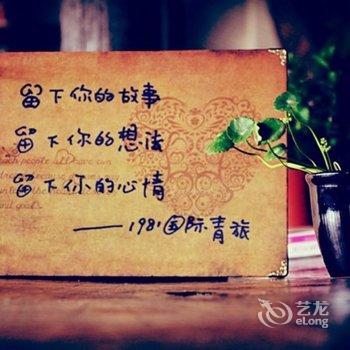 留下你的故事
留下你的想法
留下你的心情
——1981国际青旅
艺龙
eLong